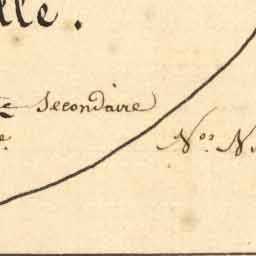 lle.
te Secondaire
e.
Nos. N